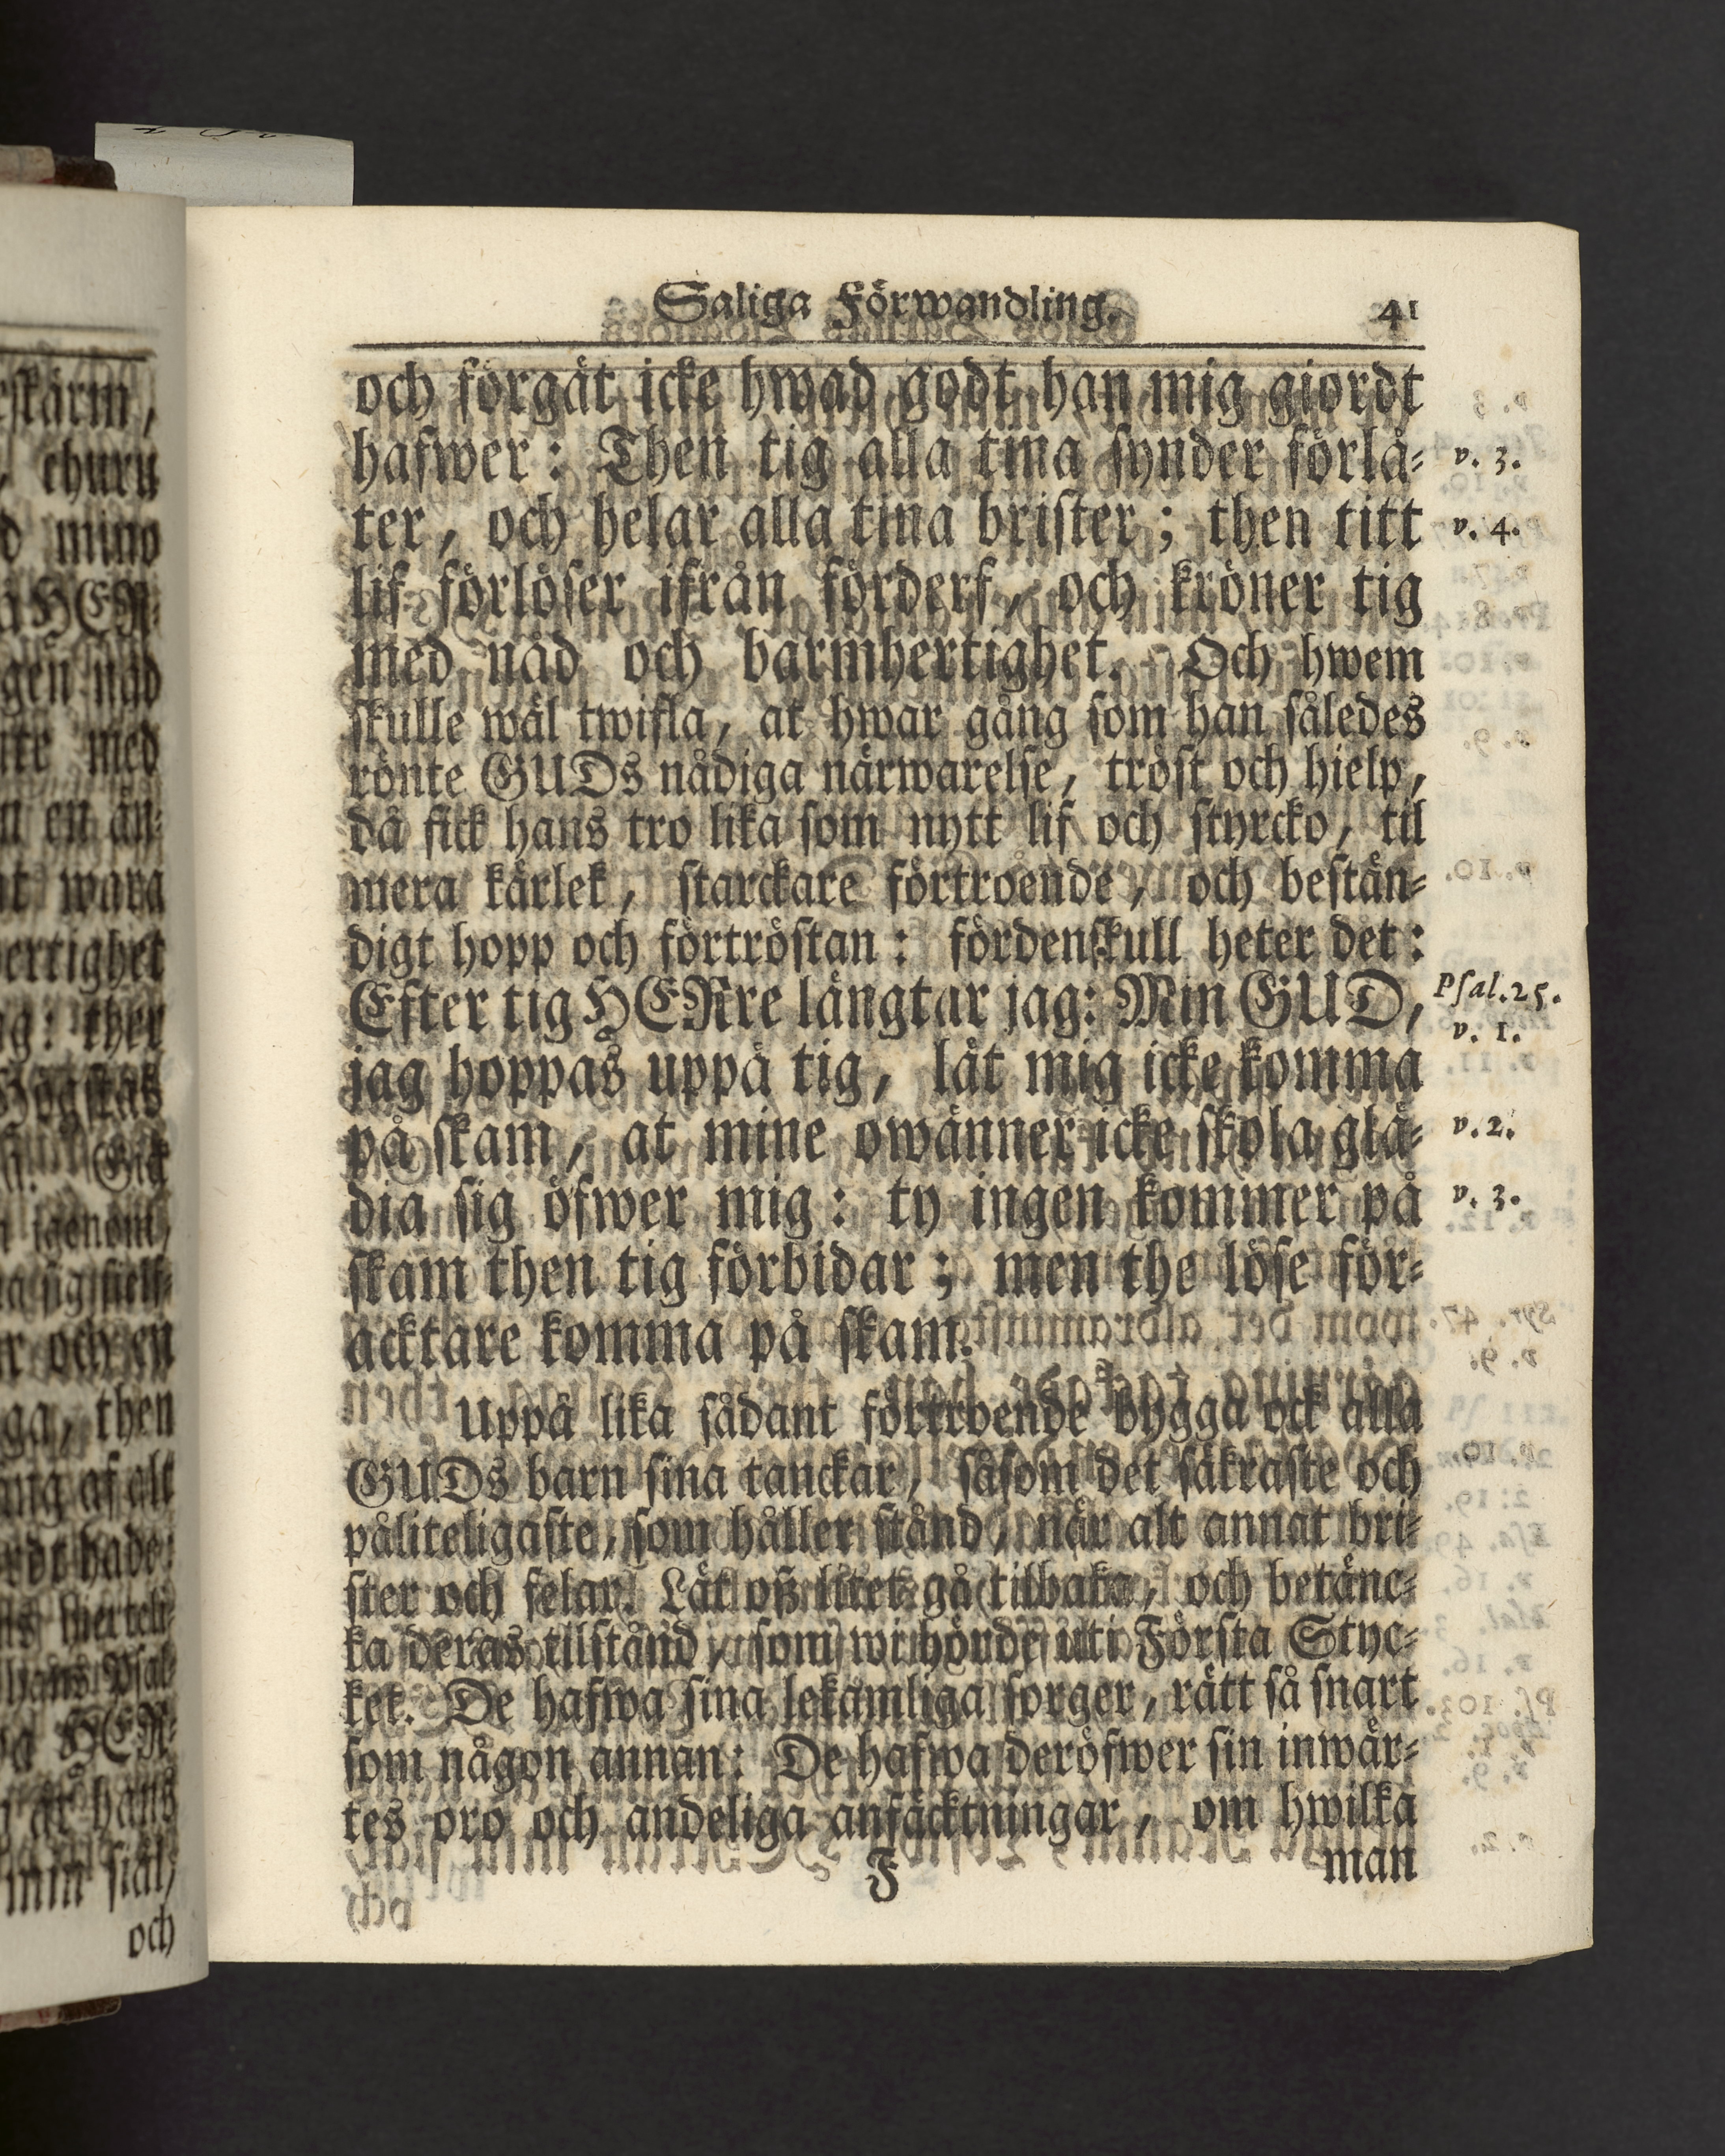 Saliga Förwandling. 41
och förgät icke hwad godt han mig giordt
hafwer: Then tig alla tina synder förlå- v. 3.
ter, och helar alla tina brister; then titt v. 4.
lif förlöser ifrån förderf, och kröner tig
med nåd och barmhertighet. Och hwem
skulle wäl twifla, at hwar gång som han således
rönte GUDs nådiga närwarelse, tröst och hielp,
då fick hans tro lika som nytt lif och styrcko, til
mera kärlek, starckare förtroende, och bestän-
digt hopp och förtröstan: fördenskull heter det:
Efter tig HERre längtar jag: Min GUD, Psal. 25. v. 1.
jag hoppas uppå tig, låt mig icke komma
på skam, at mine owänner icke skola glä- v. 2.
dia sig öfwer mig: ty ingen kommer på v. 3.
skam then tig förbidar; men the löse för-
acktare komma på skam.
Uppå lika sådant förtroende bygga ock alla
GUDs barn sina tanckar, såsom det säkraste och
påliteligaste, som håller stånd, när alt annat bri-
ster och felar. Låt oß litet gå tilbaka, och betänc-
ka deras tilstånd, som wi hörde uti Första Styc-
ket. De hafwa sina lekamliga sorger, rätt så snart
som någon annan: De hafwa deröfwer sin inwär-
tes oro och andeliga anfäcktningar, om hwilka
F man